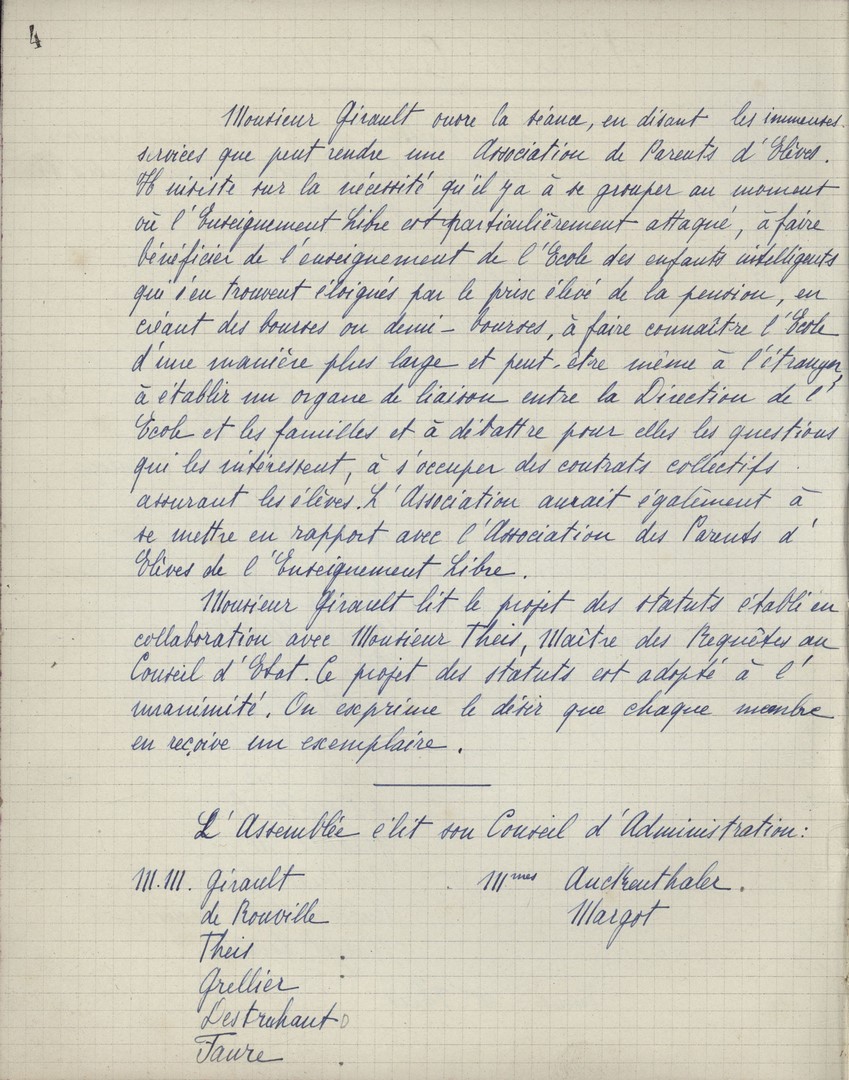 4
Monsieur Girault ouvre la séance, en disant les immenses
services que peut rendre une Association de Parents d'Elèves.
Il insiste sur la nécessité qu'il y a à se grouper au moment
où l'Enseignement Libre est particulièrement attaqué, à faire
bénéficier de l'enseignement de l'Ecole des enfants intelligents
qui s'en trouvent éloignés par le prix élevé de la pension, en
créant des bourses ou demi-bourses, à faire connaître l'Ecole
d'une manière plus large et peut-être même à l'étranger,
à établir un organe de liaison entre la Direction de l'
Ecole et les familles et à débattre pour elles les questions
qui les intéressent, à s'occuper des contrats collectifs
assurant les élèves. L'Association aurait également à
se mettre en rapport avec l'Association des Parents d'
Elèves de l'Enseignement Libre.
Monsieur Girault lit le projet des statuts établi en
collaboration avec Monsieur Theis, Maître des Requêtes au
Conseil d'Etat. Ce projet des statuts est adopté à l'
unanimité. On exprime le désir que chaque membre
en reçoive un exemplaire.
L'Assemblée élit son Conseil d'Administration:
M.M. Girault
de Rouville
Theis
Grellier
Destruhaut
Faure
Mmes Auckenthaler.
Margot